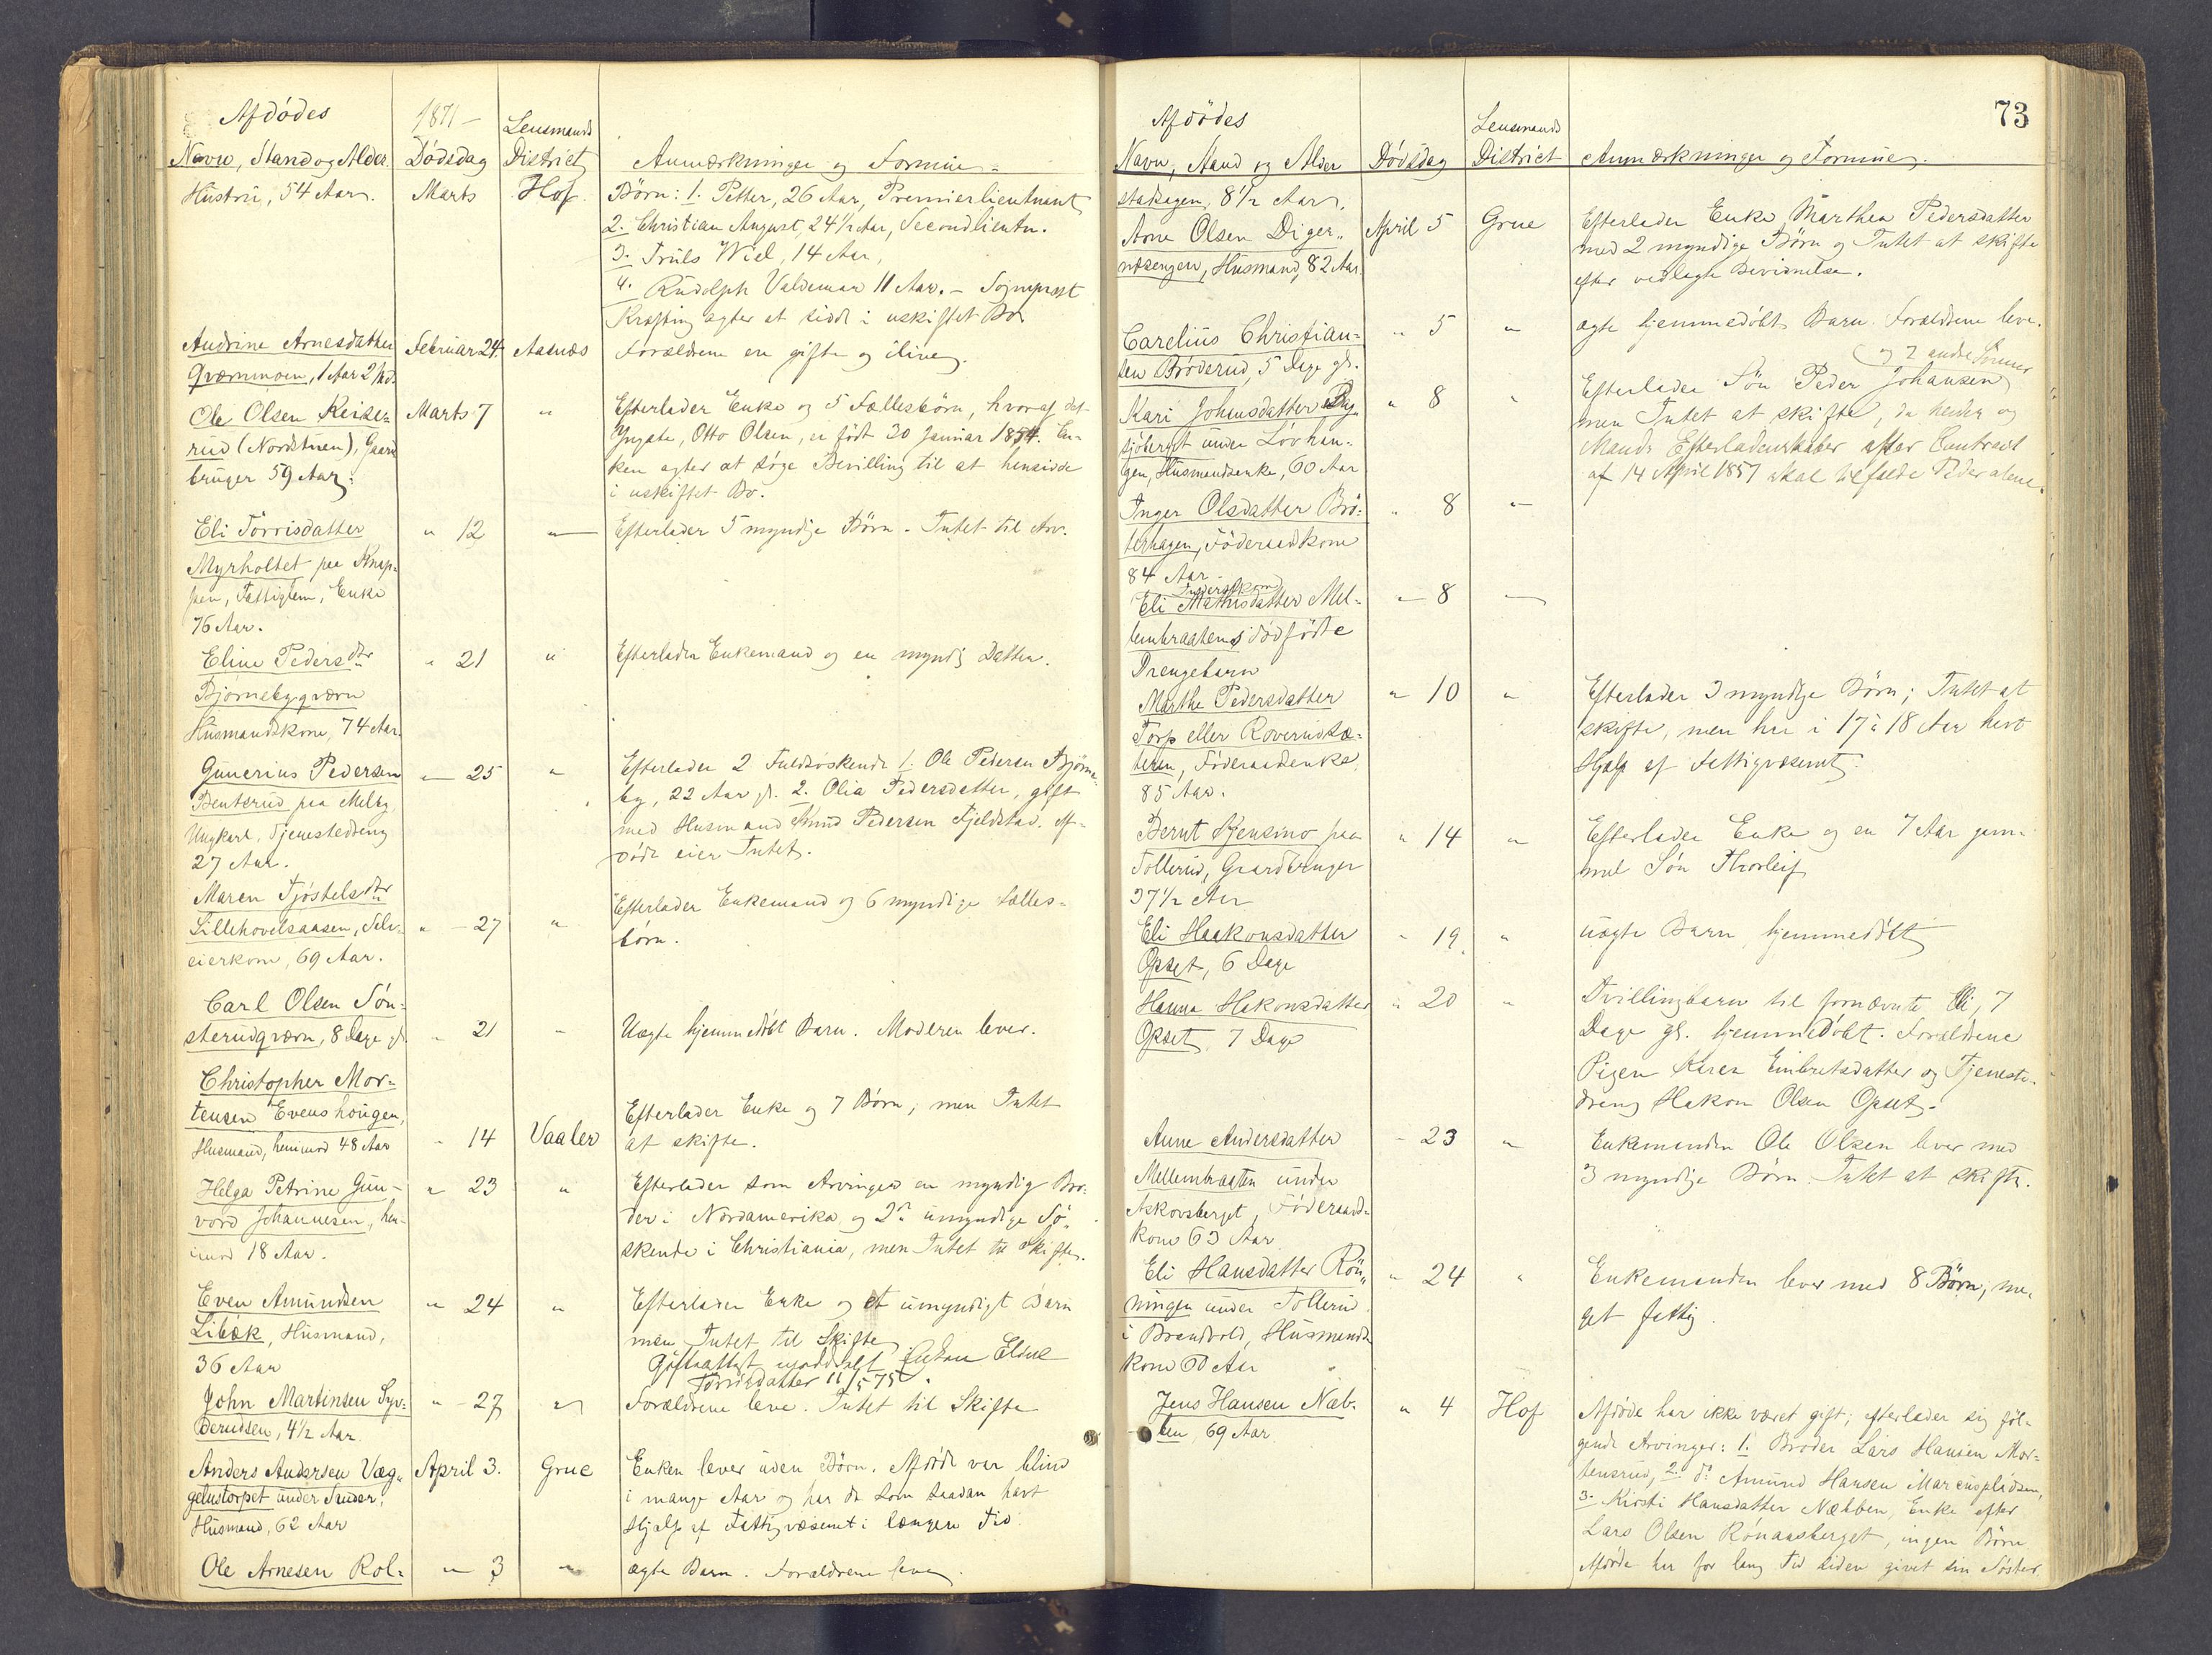 Afdödes
1871 –
Lensmands
Navn, Stand og Alder.
Dødsdag
District
Anmærkninger og Formue
Hustru, 54 Aar.
Marts
Hof
Börn: 1. Petter, 26 Aar, Premierlieutnant
2. Christian August, 24 1/2 Aar, Secondlieutn.
3. Truls Wiel, 14 Aar,
4. Rudolph Valdemar 11 Aar. – Sognepræst
Kræfting agter at sidde i uskiftet Bo
Audrine Arnesdatter
Februar 24.
Aasnæs
Forældrene ere gifte og ilive.
Qværnmoen, 1 Aar 2 Md.
Ole Olsen Keise-
Marts 7
"
Efterlader Enke og 5 Fællesbörn, hvoraf det
rud (Nordstuen), Gaard
Yngste, Otto Olsen, er född 30 Januar 1854. En-
bruger 59 Aar.
ken agter at söge Bevilling til at hensidde
i uskiftet Bo.
Eli Torrisdatter
" 12
"
Efterlader 5 myndige Börn. Intet til Arv.
Myrholtet paa Knap-
pen, Fattiglem, Enke
76 Aar.
Eline Pedersdtr
" 21
"
Efterlader Enkemand og en myndig Datter.
Björnebyqværn
Husmandskone, 74 Aar.
Gunerius Pedersen
" 25
"
Efterlader 2 Fuldsöskende 1. Ole Pedersen Björne-
Bentsrud paa Melby,
by, 22 Aar gl. 2. Olia Pedersdatter, gift
Ungkarl, Tjenestedreng
med Husmand Knud Pedersen Fjeldstad. Af-
27 Aar.
döde eier Intet.
Maren Tjöstelsdtr
Efterlader Enkemand og 6 myndige Fælles-
Lillehovelsaasen, Selv-
" 27
"
börn.
eierkone, 69 Aar.
Carl Olsen Sön-
sterudqværn, 8 Dage gl.
" 21
"
Uægte hjemmedöbt Barn. Moderen lever.
Christopher Mor-
tensen Evenshaugen,
Efterlader Enke og 7 Börn, men Intet
Husmand, henimod 48 Aar
" 14
Vaaler
at skifte.
Helga Petrine Gun-
" 23
"
Efterlader som Arvinger en myndig Bro-
vord Johannesen, hen-
der i Nordamerika og 2de umyndige Sö-
imod 18 Aar.
skende i Christiania, men Intet til Skifte.
Even Amundsen
" 24
"
Efterlader Enke og et umyndigt Barn
Libæk, Husmand,
men Intet til Skifte
36 Aar
Giftsattest meddelt Enken Eline
Torrisdatter 11/5 75.
John Martinsen Syv-
" 27
"
Forældrene leve. Intet til Skifte
derudsen, 4 1/2 Aar
Anders Andersen Væg-
April 3.
Grue
Enken lever uden Börn. Afdöde var blind
gelustorpet under
i mange Aar og har da som saadan havt
Husmand, 62 Aar
Hjælp af Fattigvæsenet i længere Tid
Ole Arnesen Rol-
" 3
"
ægte Barn. Forældrene leve.
73
Afdödes
Lensmands
Navn, Stand og Alder
Dödsdag
District
Anmærkninger og Formue.
stadsagen, 8 1/2 Aar.
Arne Olsen Diger-
April 5
Grue
Efterlader Enke Marthea Pedersdatter
næsengen, Husmand, 82 Aar.
med 2 myndige Börn og Intet at skifte
efter vedlagte Bevidnelse.
Carelius Christian-
" 5
"
ægte hjemmedöbt Barn. Forældrene leve.
sen Bröderud, 5 Dage gl.
og 2 andre Sönner
Kari Johnsdatter
" 8
"
Efterlader Sön Peder Johansen
sjöberget under Lövhau-
men Intet at skifte, da hendes og
gen, Husmandsenke, 60 Aar
Mands Efterladenskaber efter Contract
af 14 April 1857 skal tilfalde Peder alene.
Inger Olsdatter Brö-
" 8
"
terhagen, Föderaadskone
84 Aar.
Eli Mathisdatter Mel-
" 8
"
lembraatens dödfödte
Drengebarn
Marthe Pedersdatter
" 10
"
Efterlader 3 myndige Börn; Intet at
Torp eller Roverudsæ-
skifte, men har i 17 à 18 Aar havt
teren, Föderaadsenke,
Hjælp af Fattigvæsenet.
85 Aar.
Bernt Svensino paa
" 14
"
Efterlader Enke og en 7 Aar gam-
Tollerud, Gaardbruger
mel Sön Thorleif
37 1/2 Aar
Eli Haakonsdatter
" 19
"
uægte Barn, hjemmedöbt
Opset, 6 Dage
Hanna Hakonsdatter
" 20
"
Tvillingbarn til fornævnte Eli, 7
Opset, 7 Dage
Dage gl. hjemmedöbt. Forældrene
Pigen Karen Embretsdatter og Tjeneste-
dreng Hakon Olsen Opset.
Anne Andersdatter
" 23
"
Enkemanden Ole Olsen lever med
Mellembraaten under
3 myndige Börn. Intet at skifte.
Askovsberget, Föderaads-
kone 63 Aar
Eli Hansdatter Rön-
" 24
"
Enkemanden lever med 8 Börn, me-
ningen under Tollerud
get fattig.
i Brandvold, Husmands
kone 60 Aar
Jens Hansen Næb-
" 4
Hof
Afdöde har ikke været gift; efterlader sig föl-
ben, 69 Aar
gende Arvinger: 1. Broder Lars Hansen Mor-
tensrud, 2. do Amund Hansen Marcuspladsen,
3. Kirsti Hansdatter Næbben, Enke efter
Lars Olsen Rönaasberget, ingen Börn.
Afdöde har for lang Tid siden givet sin Söster